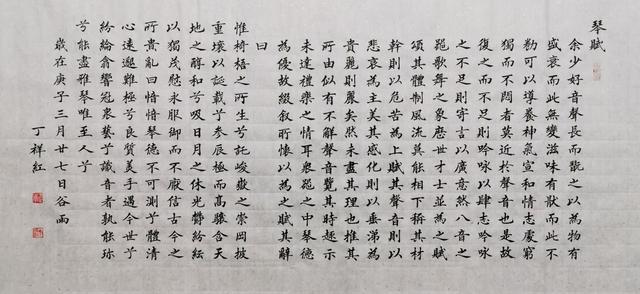 琴賦
余少好音聲長而翫之以為物有
盛衰而此無變滋味有猒而此不
勌可以導養神氣宣和情志處窮
獨而不悶者莫近於聲音也是故
復之而不足則吟詠以肆志吟詠
之不足則寄言以廣意然八音之
器歌舞之象歷世才士並為之賦
頌其體制風流莫能相下稱其材
幹則以危苦為上賦其聲音則以
悲哀為主美其感化則以垂涕為
貴麗則麗矣然未盡其理也推其
所由似有不解聲音覽其時趣示
未達禮樂之情耳眾器之中琴德
為優故綴叙所懷以為之賦其辭
曰
惟椅梧之所生兮託峻嶽之崇岡披
重壤以誕載兮參辰極而高驤含天
地之醇和兮吸日月之休光鬱紛紜
以獨茂慰永服御而不厭信古今之
所貴亂曰愔愔琴德不可測兮體清
心遠邈難極兮良質美手遇今世兮
紛綸翕響冠眾藝兮識音者孰能珍
兮能盡雅琴唯至人兮
歲在庚子三月廿七日谷雨
丁祥紅